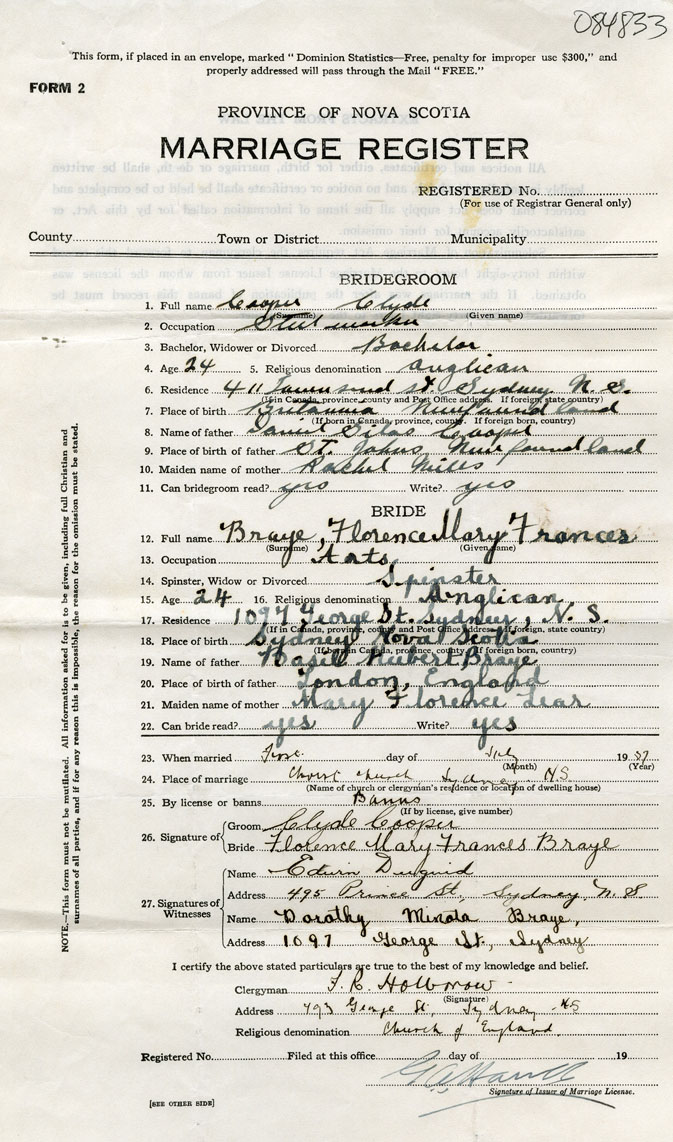 084833
"This form, if placed in an envelope, marked "Dominion Statistics—Free, penalty for improper use $300," and
properly addressed will pass through the Mail "FREE."
FORM 2
PROVINCE OF NOVA SCOTIA
MARRIAGE REGISTER
REGISTERED No.
(For use of Registrar General only)
County Town or District Municipality
BRIDEGROOM
1. Full name Cooper Clyde
(Surname) (Given name)
2. Occupation Steel worker
3. Bachelor, Widower or Divorced Bachelor
4. Age 24 5. Religious denomination Anglican
6. Residence 411 Townsend St. Sydney N. S.
(If in Canada, province, county and Post Office address. If foreign, state country)
7. Place of birth Britannia Newfoundland
(If born in Canada, province, county. If foreign born, country)
8. Name of father Daniel Silas Cooper
9. Place of birth of father St. Johns Newfoundland
10. Maiden name of mother Rachel Mills
11. Can bridegroom read? yes Write? yes
BRIDE
12. Full name Braye, Florence Mary Frances
(Surname) (Given name)
13. Occupation At
14. Spinster, Widow or Divorced Spinster
15. Age 24 16. Religious denomination Anglican
17. Residence 1097 George St. Sydney, N. S.
(If in Canada, province, county and Post Office address. If foreign, state country)
18. Place of birth Sydney Nova Scotia
(If born in Canada, province, county. If foreign born, country)
19. Name of father Basil Hubert Braye
20. Place of birth of father London, England
21. Maiden name of mother Mary Florence Lear
22. Can bride read? yes Write? yes
23. When married day of July 19 37
(Month) (Year)
24. Place of marriage Christ Church Sydney N.S
(Name of church or clergyman's residence or location of dwelling house)
25. By license or banns Banns
(If by license, give number)
26. Signature of
Groom Clyde Cooper
Bride Florence Mary Frances Braye
27. Signatures of Witnesses
Name Edwin Duguid
Address 495 Prince St., Sydney, N. S.
Name Dorothy Minota Braye,
Address 1097 George St., Sydney
I certify the above stated particulars are true to the best of my knowledge and belief.
Clergyman
(Signature)
Address 793 George St, Sydney N.S
Religious denomination Church of England.
Registered No. Filed at this office day of 19
Signature of Issuer of Marriage License.
[SEE OTHER SIDE]
NOTE.—This form must not be mutilated. All information asked for is to be given, including full Christian and
surnames of all parties, and if for any reason this is impossible, the reason for the omission must be stated.